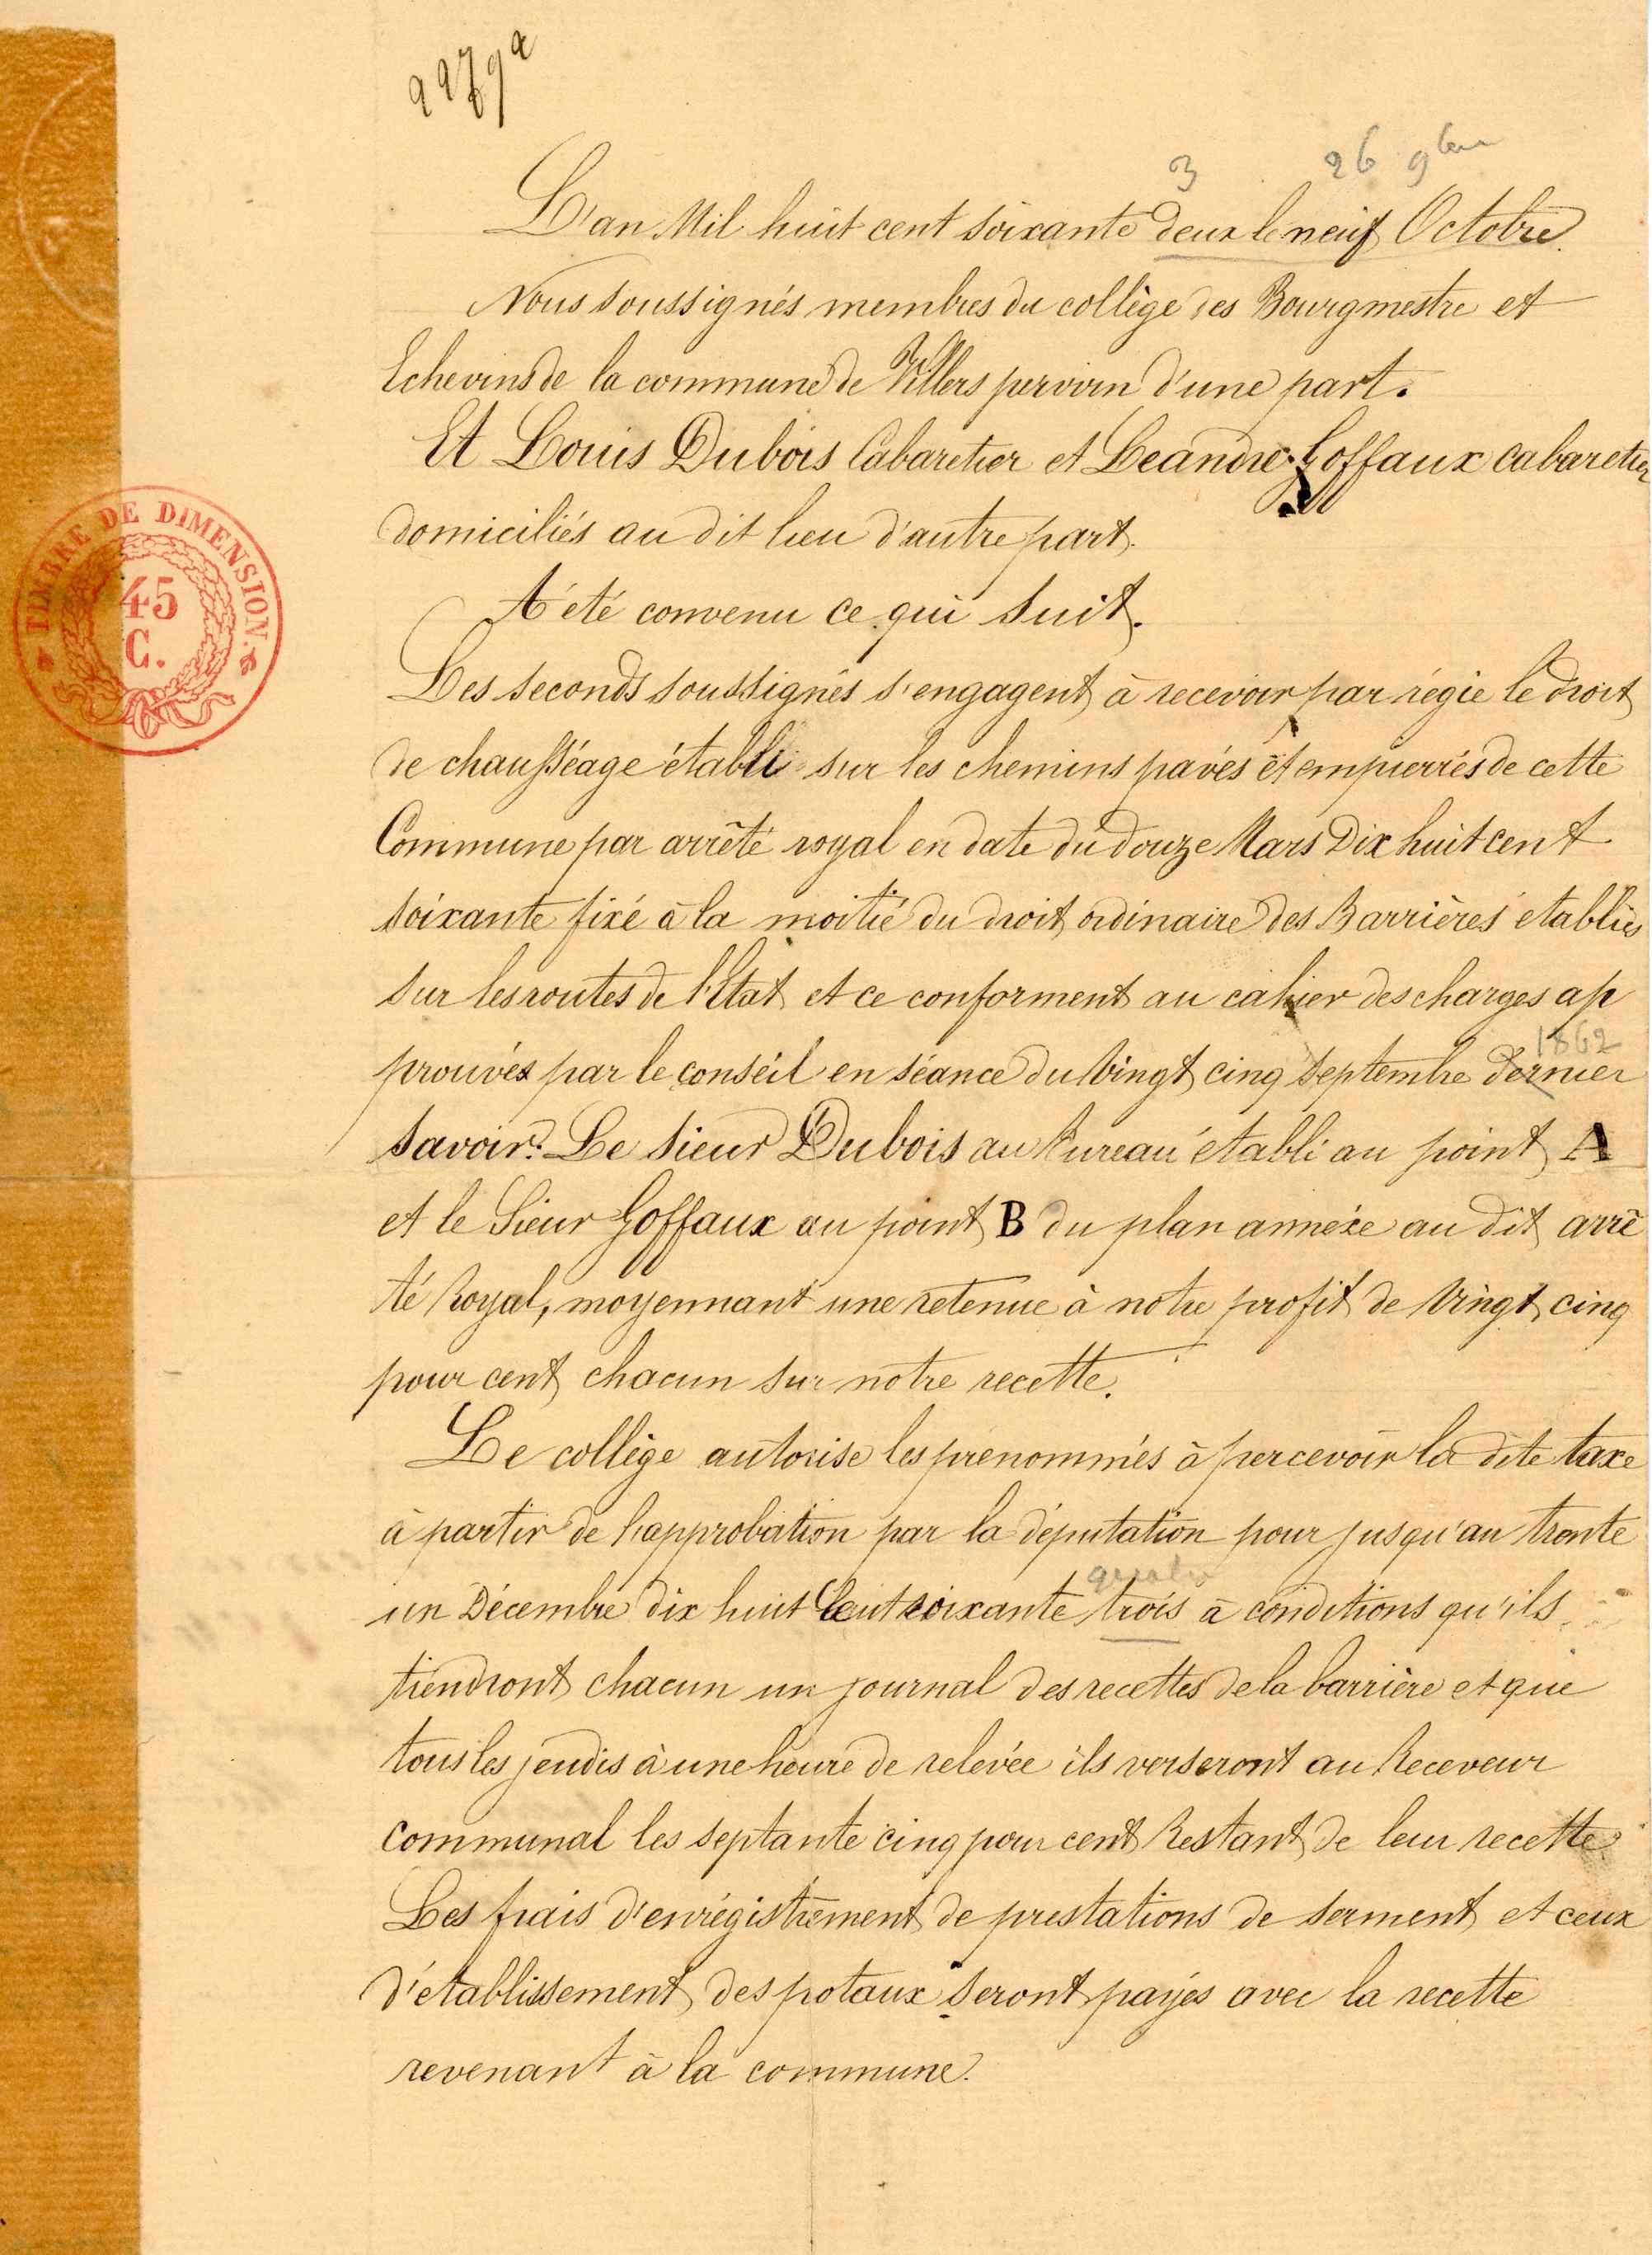 3 26 9bre
L'an Mil huit cent soixante deux le neuf Octobre
Nous soussignés membres du collège des Bourgmestre et
Echevins de la commune de Villers perwin d'une part.
Et Louis Dubois Cabaretier et Leandre Goffaux cabaretier
domiciliés au dit lieu d'autre part.
A été convenu ce qui suit.
TIMBRE DE DIMENSION.
45
C.
Les seconds soussignés s'engagent à recevoir par régie le droit
de chausséage établi sur les chemins pavés et empierrés de cette
Commune par arrêté royal en date du douze Mars Dix huit cent
soixante fixé à la moitié du droit ordinaire des Barrières établies
sur les routes de l'Etat et ce conforment au cahier des charges ap
1862
prouvés par le conseil en séance du Vingt cinq Septembre dernier
savoir: Le sieur Dubois au Bureau établi au point A
et le Sieur Goffaux au point B du plan annéxe au dit arrê
té Royal, moyennant une retenue à notre profit de Vingt cinq
pour cent chacun sur notre recette.
Le collège autorise les prénommés à percevoir la dite taxe
à partir de l'approbation par la députation pour jusqu'au trente
quatre
un Décembre dix huit Cent soixante trois à conditions qu'ils
tiendront chacun un journal des recettes de la barrière et que
tous les jeudis à une heure de relevée ils verseront au Receveur
communal les septante cinq pour cent Restant de leur recette
Les frais d'enrégistrement de prestations de serment et ceux
d'établissement des potaux seront payés avec la recette
revenant à la commune.